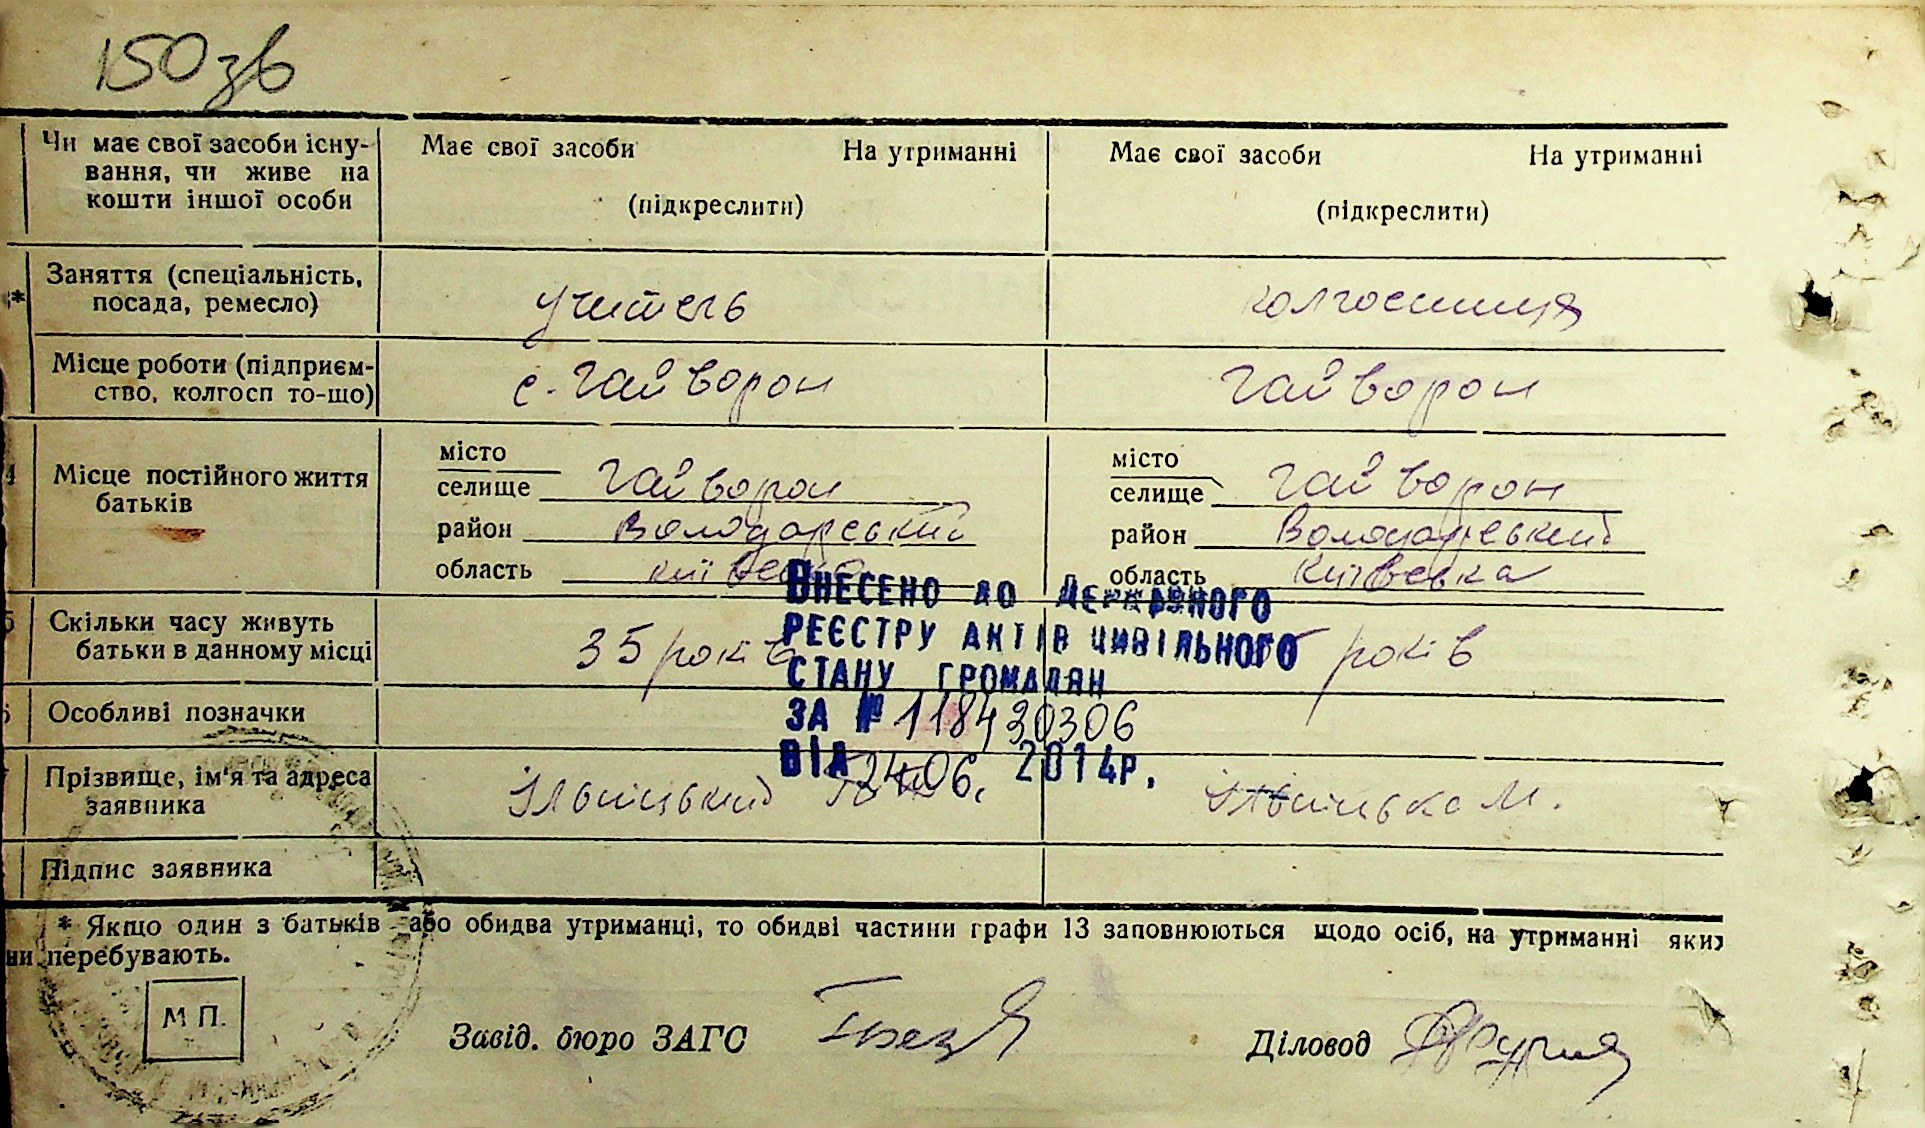 150 зв
Чи має свої засоби існу- Має свої засоби На утриманні Має свої засоби На утриманні
вання, чи живе на
кошти іншої особи (підкреслити) (підкреслити)
Заняття (спеціальність,
* посада, ремесло) учитель колгоспниця
Місце роботи (підприєм-
ство, колгосп то-що) с. Гайворон Гайворон
місто місто
4 Місце постійного життя селище Гайворон селище Гайворон
батьків район Володарський район Володарський
область Київська область Київська
ВНЕСЕНО ДО ДЕРЖАВНОГО
5 Скільки часу живуть
батьки в данному місці 35 років років
РЕЄСТРУ АКТІВ ЦИВІЛЬНОГО
СТАНУ ГРОМАДЯН
6 Особливі позначки
ЗА № 118420306
ВІД 24.06. 2014р.
Прізвище, ім'я та адреса
заявника Ільніцький Ільніцька М.
Підпис заявника
* Якщо один з батьків або обидва утриманці, то обидві частини графи 13 заповнюються щодо осіб, на утриманні яких
ни перебувають.
М П.
Завід. бюро ЗАГС Діловод